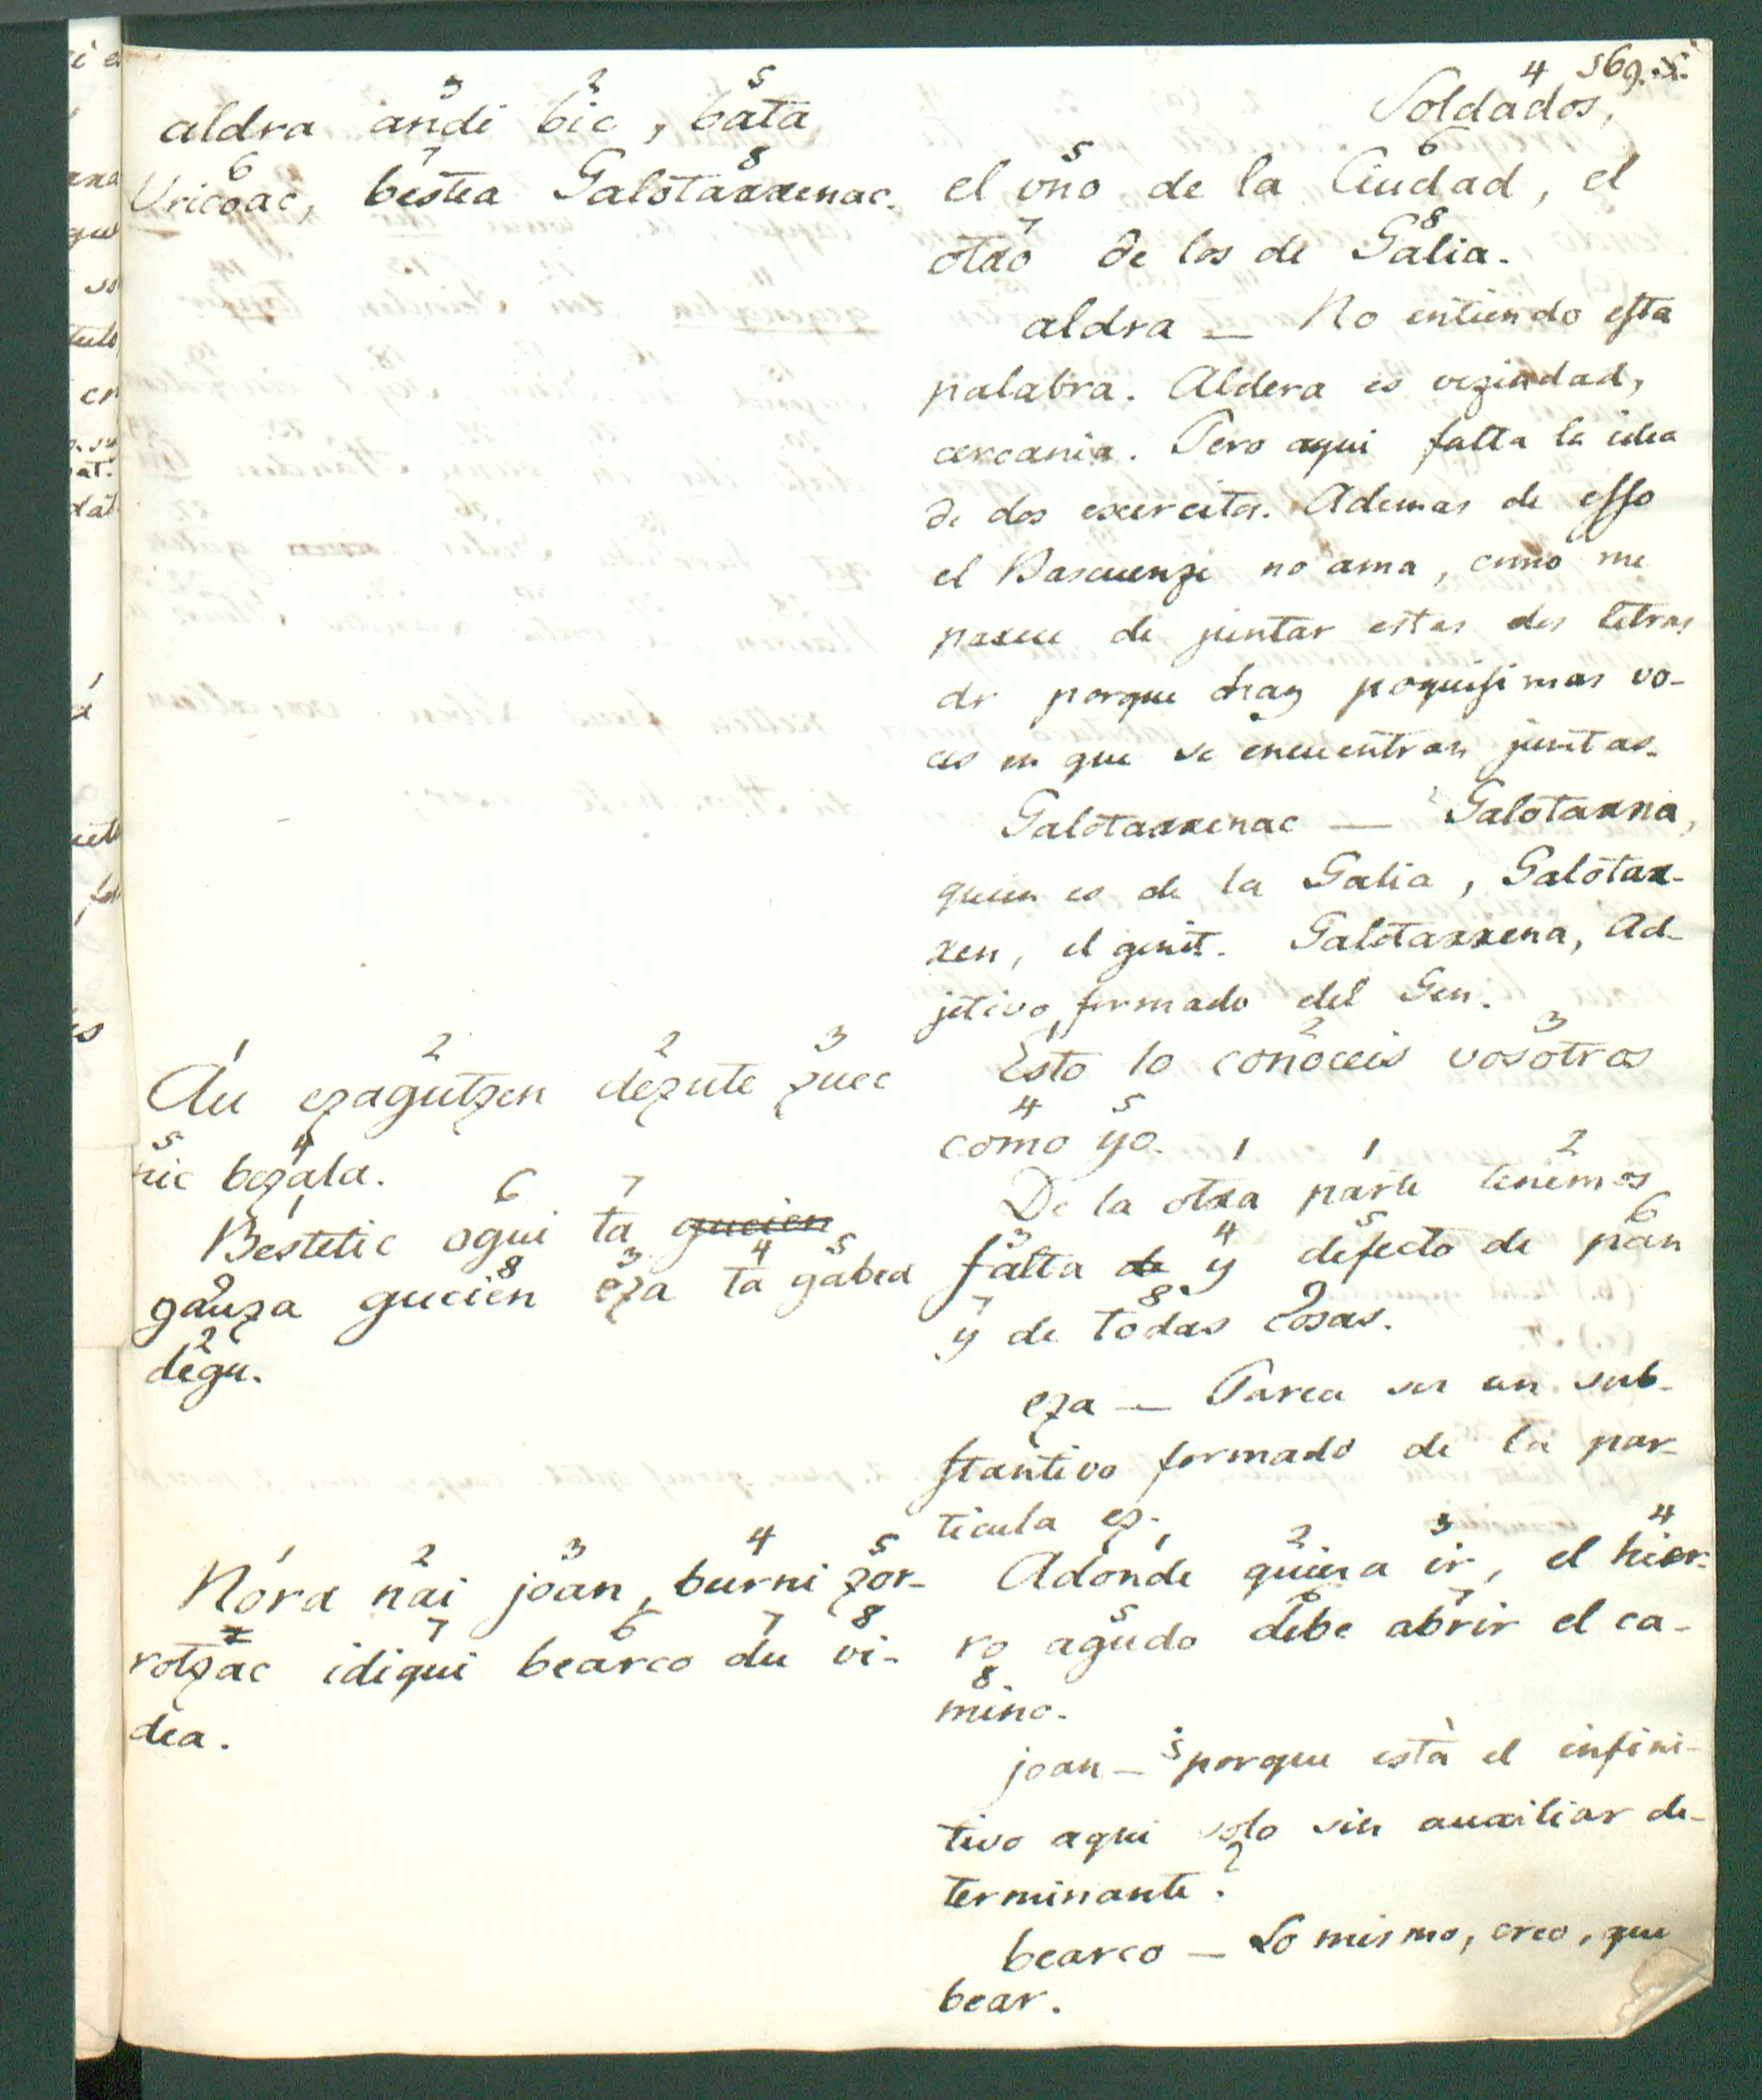 569. 5.
3 2 5
aldra andi bic, bata
6 7 8
Uricoac, bestea Galotarrenac.
4
Soldados,
5 6
el uno de la Ciudad, el
7 8
otro de los de Galia.
aldra — No entiendo esta
palabra. Aldera es vezindad,
cercania. Pero aqui falta la idea
de dos exercitos. Ademas de esso
el Bascuenze no ama, como me
parece de juntar estas dos letras
dr porque hay poquisimas vo-
ces en que se encuentran juntas.
Galotarrenac — Galotarra,
quien es de la Galia, Galotar-
ren, el genit. Galotarrena, Ad-
jetivo formado del Gen.
1 2 2 3
Au ezagutzen dezute zuec
5 4
nic bezala.
1 6 7
Bestetic ogui ta gucien
9 8 3 4 5
gauza gucien eza ta gabea
2
degu.
1 2 3
Esto lo conoceis vosotros
4 5
como yo.
1 1 2
De la otra parte tenemos
3 4 5 6
falta de y defecto de pan
7 8 9
y de todas cosas.
eza — Parece ser un sub-
stantivo formado de la par-
ticula ez.
1 2 3 4 5
Nora nai joan, burni zor-
7 6 7 8
rotzac idiqui bearco du vi-
dea.
1 2 3 4
Adonde quiera ir, el hier-
5 6 7
ro agudo debe abrir el ca-
8
mino.
joan — ¿porque està el infini-
tivo aqui solo sin auxiliar de-
terminante?
bearco — Lo mismo, creo, que
bear.